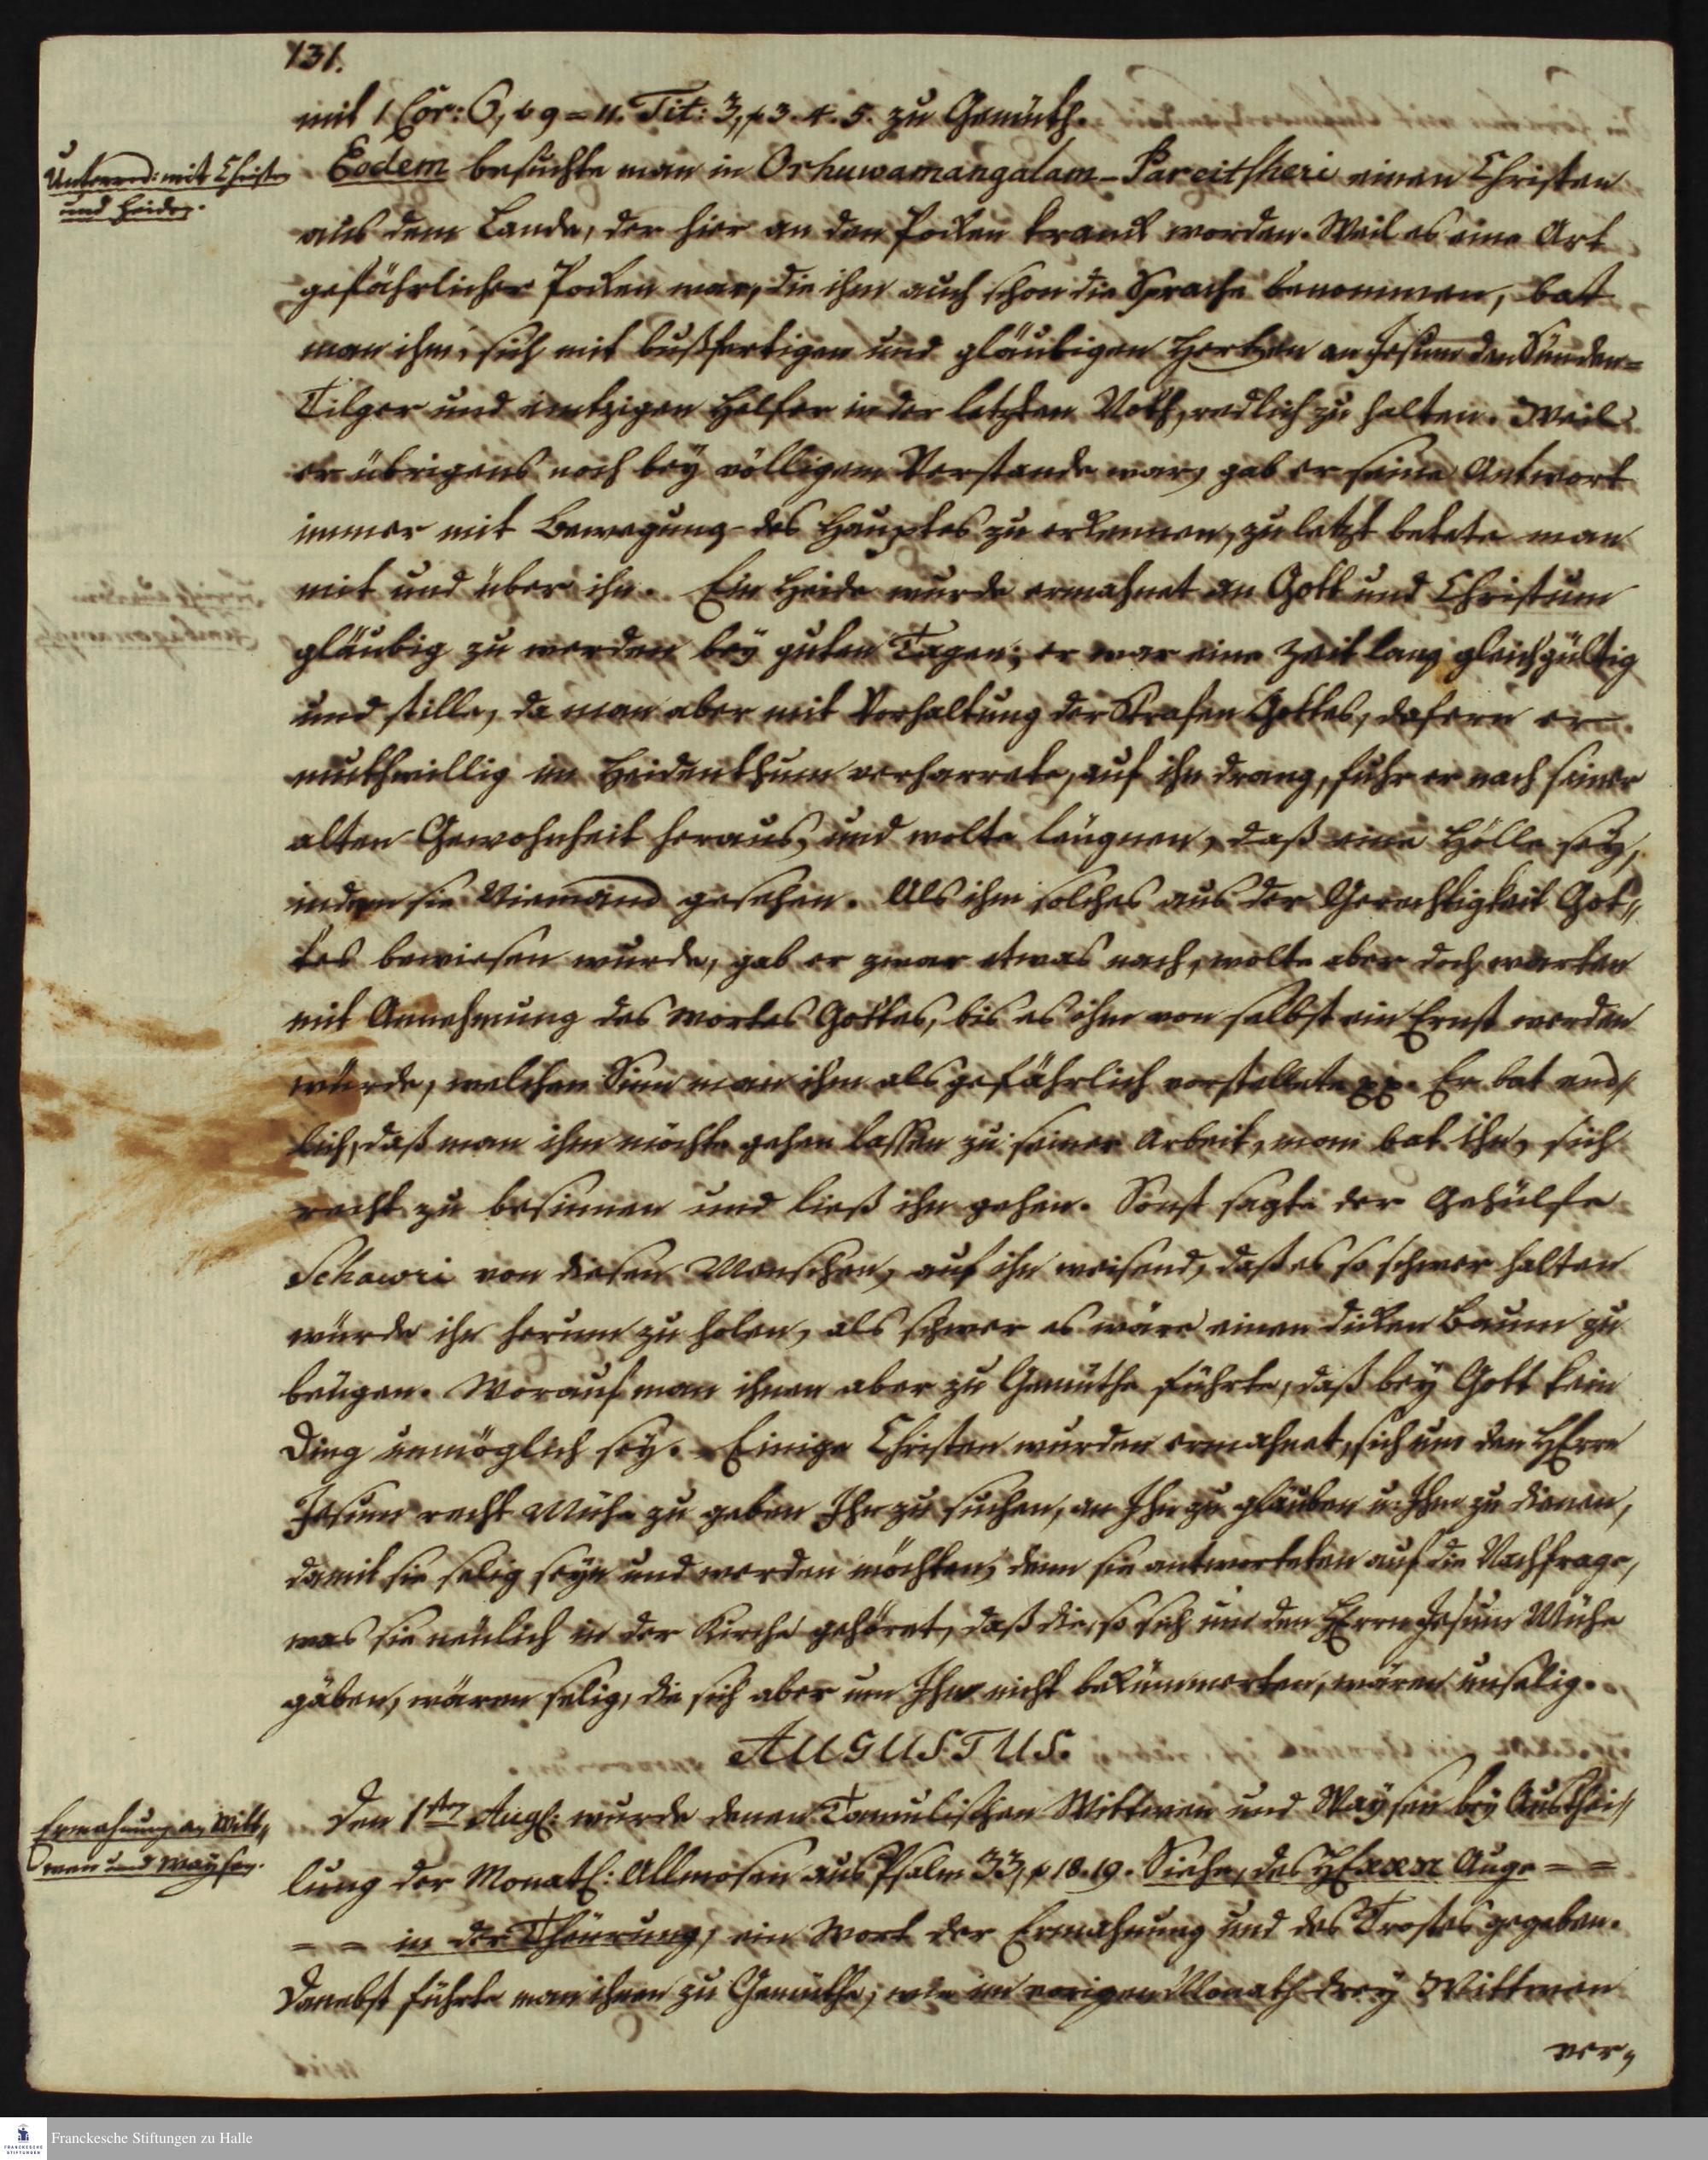 131.
mit 1 Cor: 6, v 9 = 11. Tit: 3, v 3. 4. 5. zu Gemüth.
Unterred: mit Christen
und Heiden.
Eodem besuchte man in Oshuwamangalam-Pareitsheri einen Christen
aus dem Lande, der hier an den Pocken kranck worden. Weil es eine Art
gefährlicher Pocken war, die ihm auch schon die Sprache benommen, batt
man ihn, sich mit bußfertigen und gläubigen Hertzen an Jesum den Sünden=
Tilger und eintzigen Helfer in der letzten Noth, redlich zu halten. Weil
er übrigens noch bey völligem Verstande war, gab er seine Antwort
immer mit Bewegung des Hauptes zu erkennen, zu letzt betete man
mit und über ihn. Ein Heide wurde ermahnet an Gott und Christum
gläubig zu werden bey guten Tagen; er war eine Zeit lang gleichgültig
und stille, da man aber mit Vorhaltung der Strafen Gottes, dafern er
muthwillig im Heidenthum verharrete, auf ihn drang, fuhr er nach seiner
alten Gewohnheit heraus, und wolte leugnen, daß eine Hölle sey,
indem sie Niemand gesehen. Als ihm solches aus der Gerechtigkeit Got„
tes bewiesen wurde, gab er zwar etwas nach, wolte aber doch warten
mit Annehmung des Wortes Gottes, bis es ihm von selbst ein Ernst werden
würde, welchen Sinn man ihm als gefährlich vorstellete pp. Er bat end„
lich, daß man ihn möchte gehen lassen zu seiner Arbeit, man bat ihn, sich
recht zu besinnen und ließ ihn gehen. Sonst sagte der Gehülfe
Schawri von diesen Menschen, auf ihn weisend, daß es so schwer halten
würde ihn herum zu holen, als schwer es wäre einen dicken Baum zu
beugen. Worauf man ihnen aber zu Gemüthe führte, daß bey Gott kein
Ding unmöglich sey. Einige Christen wurden ermahnet, sich um den HErrn
Jesum recht Mühe zu geben Ihn zu suchen, an Ihn zu gläuben u. Ihm zu dienen,
damit sie selig seyn und werden möchten, denn sie antworteten auf die Nachfrage,
was sie neulich in der Kirche gehöret, daß die, so sich um den HErrn Jesum Mühe
gäben, wären selig, die sich aber um Ihn nicht bekümmerten, wären unselig.
AUGUSTUS.
Ermahnung an Witt„
wen und Waysen.
Den 1ten Aug: wurde denen Tamulischen Wittwen und Waysen bey Austhei„
lung der Monatl: Allmosen aus Psalm 33, v 18. 19. Siehe, des HErrn Auge = =
= = in der Theurung, ein Wort der Ermahnung und des Trostes gegeben.
Danebst führte man ihnen zu Gemüthe, wie im vorigen Monath drey Wittwen
ver„
Franckesche Stiftungen zu Halle